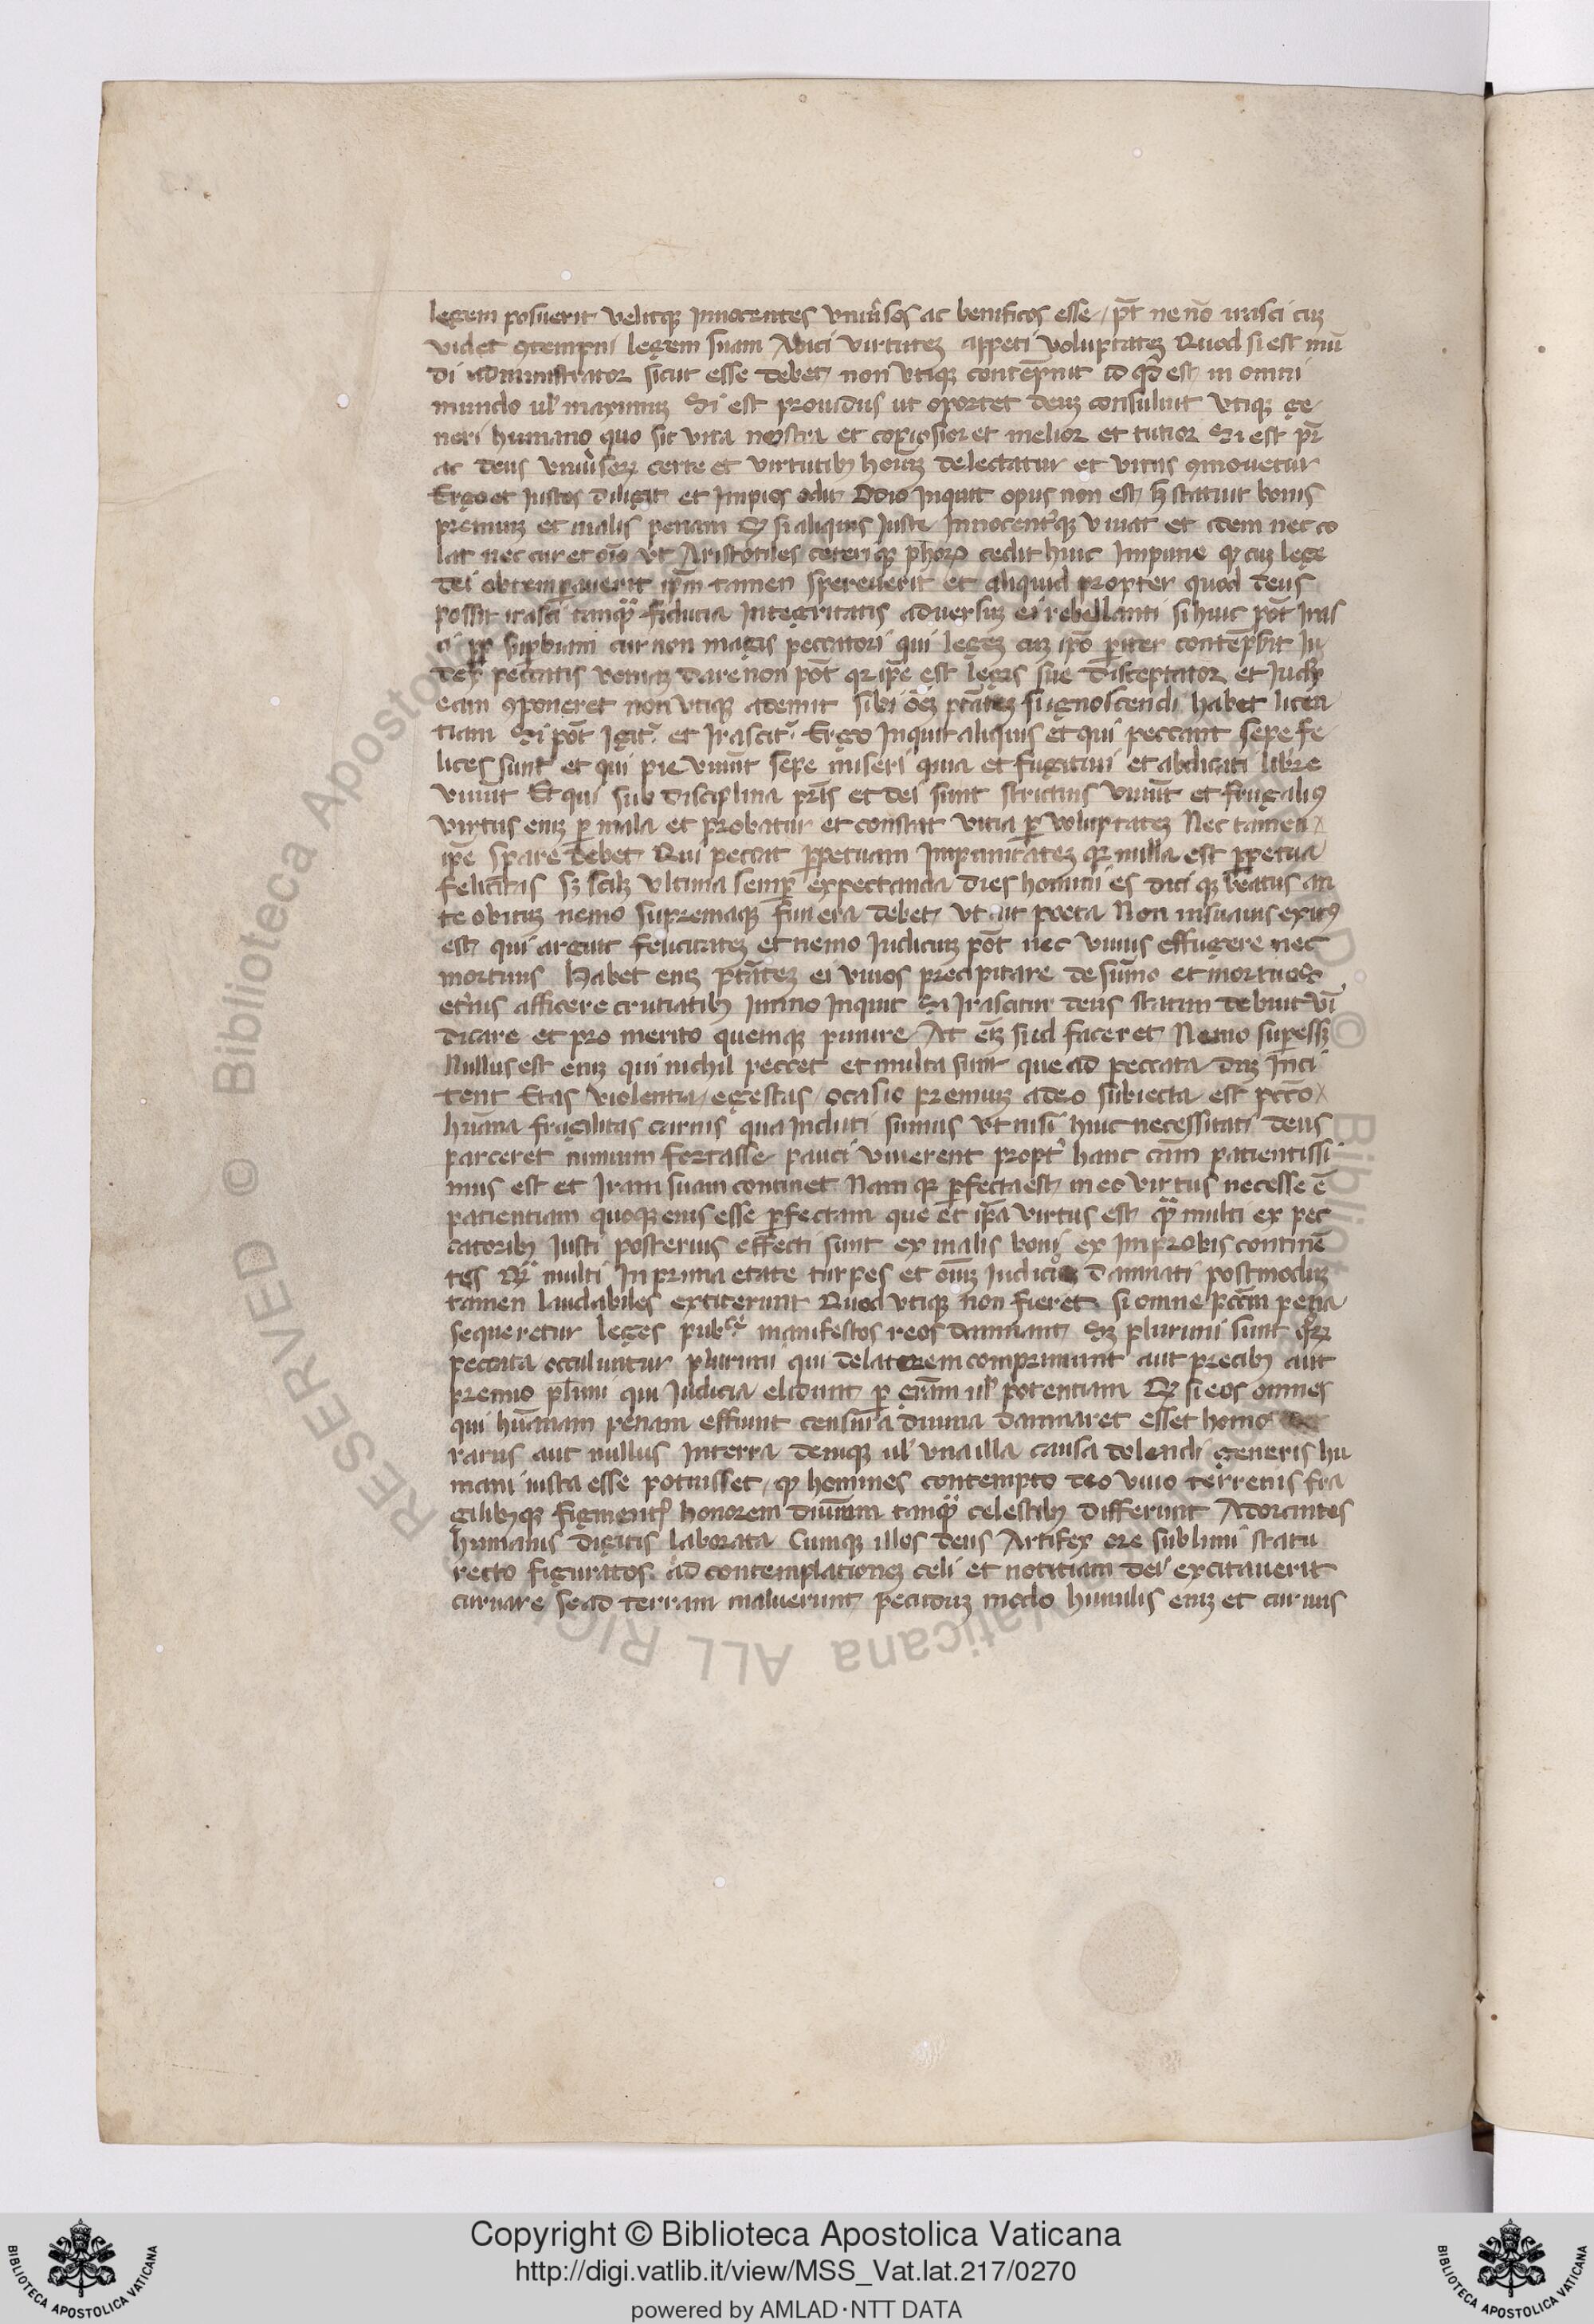 legem posuerit velitqꝫ Innocentes vniũsos ac benificos esse pt̄ ne nō irasci cuꝫ
videt ꝯtempni legem suam Abici virtuteꝫ appeti voluptateꝫ Quod si est mū
di administrator sicut esse debet non vtiqꝫ contēpnit id qd̄ est in omni
mundo ul' maximuꝫ Si est prouidus ut oportet deuꝫ consuluit vtiqꝫ ge
neri humano quo sit vita nostra et copiosior et melior et tutior Si est pr̄
ac deus vniũsoꝝ certe et virtutibꝫ hoīuꝫ delectatur et vitiis ꝯmouetur
Ergo et Iustos diligit et Impios odit Odio Inquit opus non est statuit bonis
premiuꝫ et malis penam Qꝫ si aliquis Iuste Innocentꝰqꝫ viuat et idem nec co
lat nec curet oīo vt Aristotiles ceteriqꝫ ph̄oꝝ cedit huic Impune qꝫ cuꝫ lege
dei obtemꝑauerit ip̄m tamen spreuerit et aliquid propter quod deus
possit irasci tanqͣꝫ fiducia Integritatis adversuꝫ ei rebellanti si huic pōt Iras
ci ꝓp suꝑbiam cur non magis peccatori qui legeꝫ cuꝫ ipō ꝑiter contēpsit Iu
dex peccatis veniaꝫ dare non pōt qꝛ ip̄e est legis sue disceptator et Iudex
eam ꝯponeret non vtiqꝫ ademit sibi ōeꝫ ptāteꝫ s ignoscendi habet licen
tiam Si pōt Igit᷑ et Irascit᷑ Ergo Inquit aliquis et qui peccant sepe fe
lices sunt et qui pie viuūt sepe miseri quia et fugitiui et abdicati libre
viuūt Et qui sub disciplina pr̄is et dei sunt strictius viuūt et frugaliꝰ
virtus eniꝫ ꝑ mala et probatur et constat vitia ꝑ voluptateꝫ Nec tamen
ip̄e sꝑare debet Qui peccat ꝑpetuam Impunitateꝫ qꝛ nulla est ꝑpetua
felicitas sꝫ scilꝫ vltima semꝑ expectanda dies homini es dici qꝫ beatus an
te obituꝫ nemo supremaqꝫ funera debet vt ait poeta Non insuauis exitꝰ
est qui arguit felicitateꝫ et nemo Iudiciuꝫ pōt nec viuus effugere nec
mortuus Habet eniꝫ ptāteꝫ ei viuos precipitare de sūmo et mortuos
etr̄nis afficere crutiatibꝫ Immo Inquit Si Irascitur deus statim debuit vī
dicare et pro merito quemqꝫ punire At eīꝫ si id faceret Nemo suꝑessꝫ
Nullus est eniꝫ qui nichil peccet et multa sunt que ad peccata duꝫ Inci
tent Etas violentia egestas ocasio premiuꝫ adeo subiecta est pctō
hūana fragilitas carnis qua Induti sumus vt nisi huic necessitati deus
parceret nimium fortasse pauci viuerent propt᷑ hanc cām patientissi
mus est et Iram suam continet Nam qꝛ ꝑfecta est in eo virtus necesse ē
patientiam quoqꝫ eius esse ꝑfectam que et ip̄a virtus est qͣꝫ multi ex pec
catoribꝫ Iusti posterius effecti sunt ex malis boni ex Improbis continē
tes Qͣꝫ multi In prima etate turpes et oīuꝫ Iudicio damnati postmoduꝫ
tamen laudabiles extiterunt Quod vtiqꝫ non fieret si omne pctm̄ pena
sequeretur leges pubᶜᵉ manifestos reos damnant Sꝫ plurimi sunt qͦꝝ
peccata occuluntur plurimi qui delatorem comprimunt aut precibꝫ aut
premio pl̄imi qui Iudicia elidunt ꝑ gr̄am ul' potentiam Qꝫ si eos omnes
qui hūanam penam effiunt censura diuina damnaret esset homo
rarus aut nullus Interra deniqꝫ ul' vna illa causa delendi generis hu
mani iusta esse potuisset qꝫ homines contempto deo viuo terrenis fra
gilibꝫqꝫ figmentꝭ honorem diuinum tanqͣꝫ celestibꝫ differunt Adorantes
humanis digitis laborata Cumqꝫ illos deus Artifex ore sublimi statu
recto figuratos ad contemplationeꝫ celi et notitiam dei excitauerit
curuare se ad terram maluerunt pecuduꝫ modo humilis eniꝫ et curuus
Copyright © Biblioteca Apostolica Vaticana
http://digi.vatlib.it/view/MSS_Vat.lat.217/0270
powered by AMLAD·NTT DATA